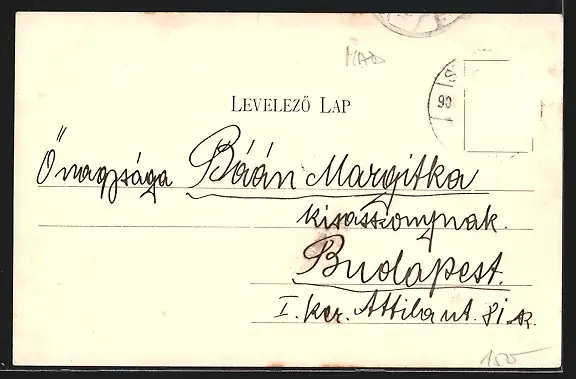 MAD
90
LEVELEZŐ LAP
Őnagysága Báán Margitka
kisasszonynak.
Budapest.
I. ker. Attila ut. 81. sz.
100